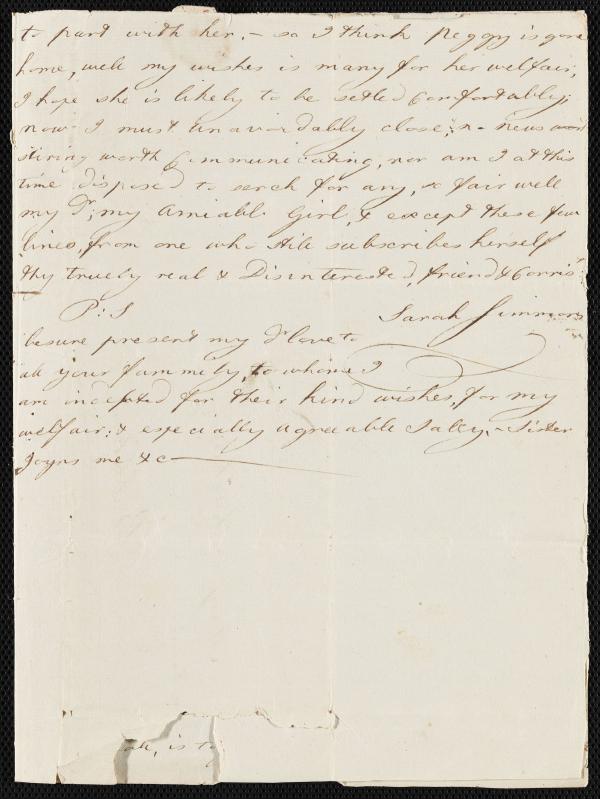 to part with her, - so I think Peggy is gone
home, well my wishes is many for her welfair,
I hope she is likely to be setled Comfortably;
now I must unavoidably close; no news
stiring worth Communicating, nor am I at this
time disposed to serch for any, so fair well
my Dr; my amiable Girl, & except these few
lines, from one who still subscribes herself
thy truely real & Disinterested, friend & Corrist
P: S Sarah Simmons
besure present my Dr love to
all your fammily, to whome I
am indepted for their kind wishes, for my
welfair: & especially agreeable Salley, - Sister
Joyns me &c
is to